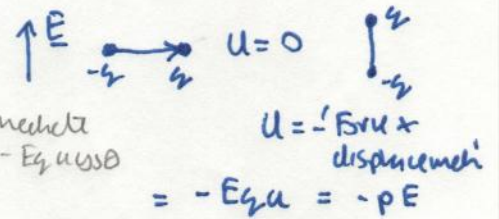 E
-q q U = 0 q
-q
- Eqa cosθ
U = - 'Force x
displacement'
= - Eqa = - pE